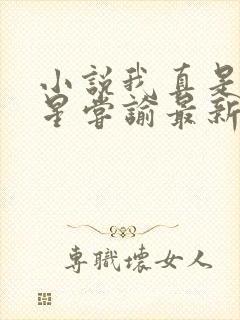 小說我真是
星嘗諭最新
專職壞女人